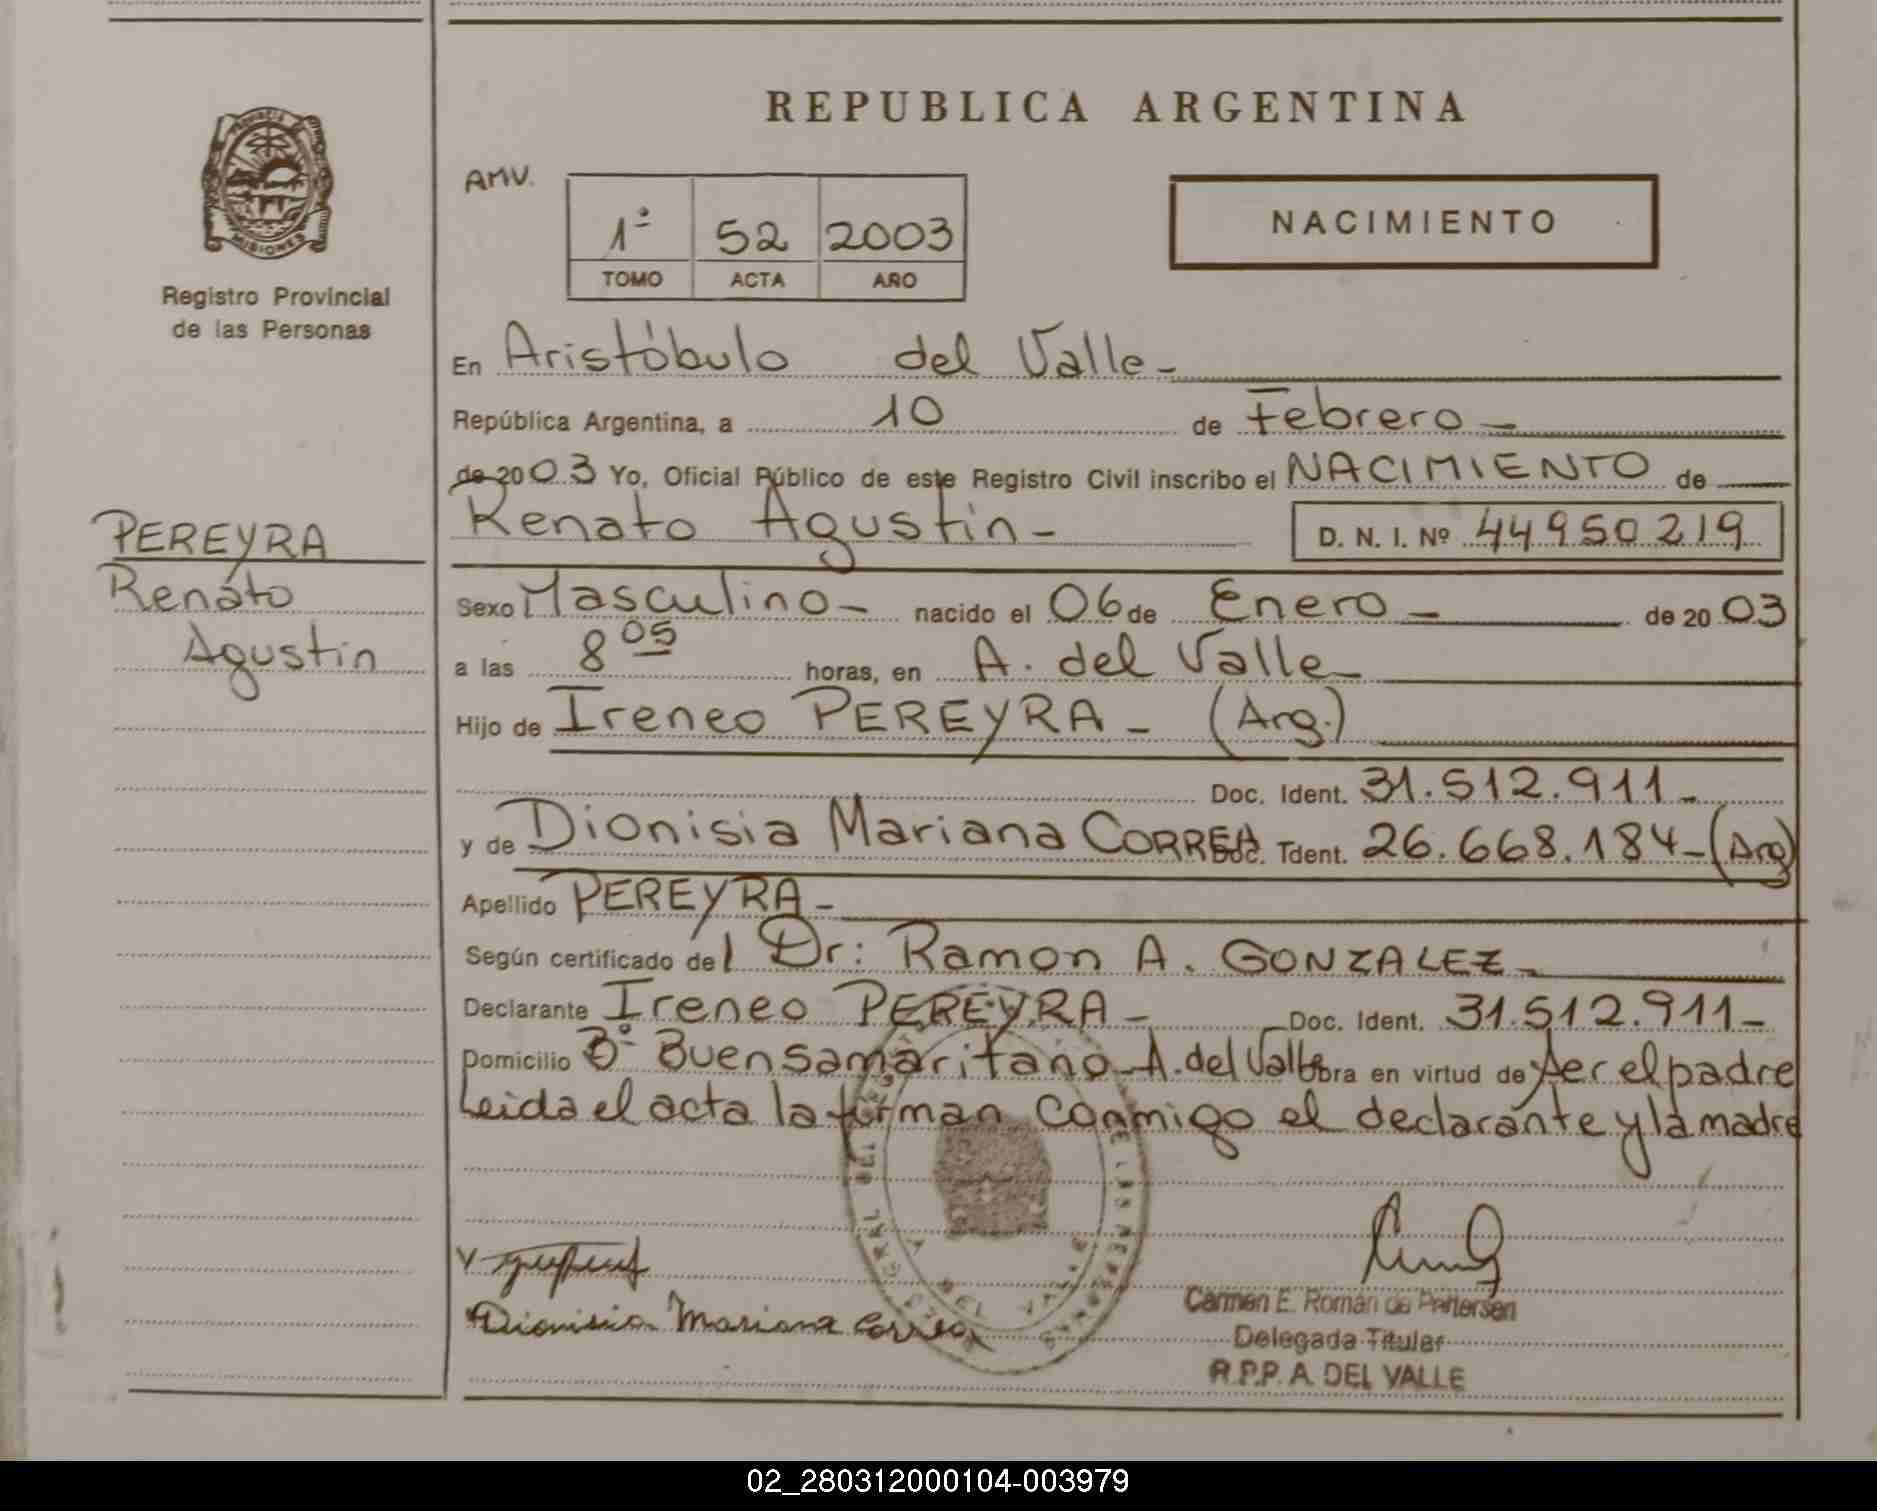 REPUBLICA ARGENTINA
AMV.
1º 52 2003
TOMO ACTA AÑO
NACIMIENTO
PROVINCIA
MISIONES
Registro Provincial
de las Personas
En Aristóbulo del Valle -
República Argentina, a 10 de Febrero -
de 2003 Yo, Oficial Público de este Registro Civil inscribo el NACIMIENTO de
Renato Agustin -
D. N. I. Nº 44950219
PEREYRA
Renato
Agustin
Sexo Masculino - nacido el 06 de Enero - de 2003
a las 8 05 horas, en A. del Valle -
Hijo de Ireneo PEREYRA - (Arg.)
Doc. Ident. 31.512.911 -
y de Dionisia Mariana CORREA Doc. Ident. 26.668.184 - (Arg)
Apellido PEREYRA -
Según certificado del Dr: Ramon A. GONZALEZ -
Declarante Ireneo PEREYRA - Doc. Ident. 31.512.911 -
Domicilio Bº Buen samaritano - A. del Valle obra en virtud de ser el padre
Leida el acta la firman conmigo el declarante y la madre
Dionisia Mariana Correa
Carmen E. Román de Pettersen
Delegada Titular
R.P.P. A. DEL VALLE
02_280312000104-003979